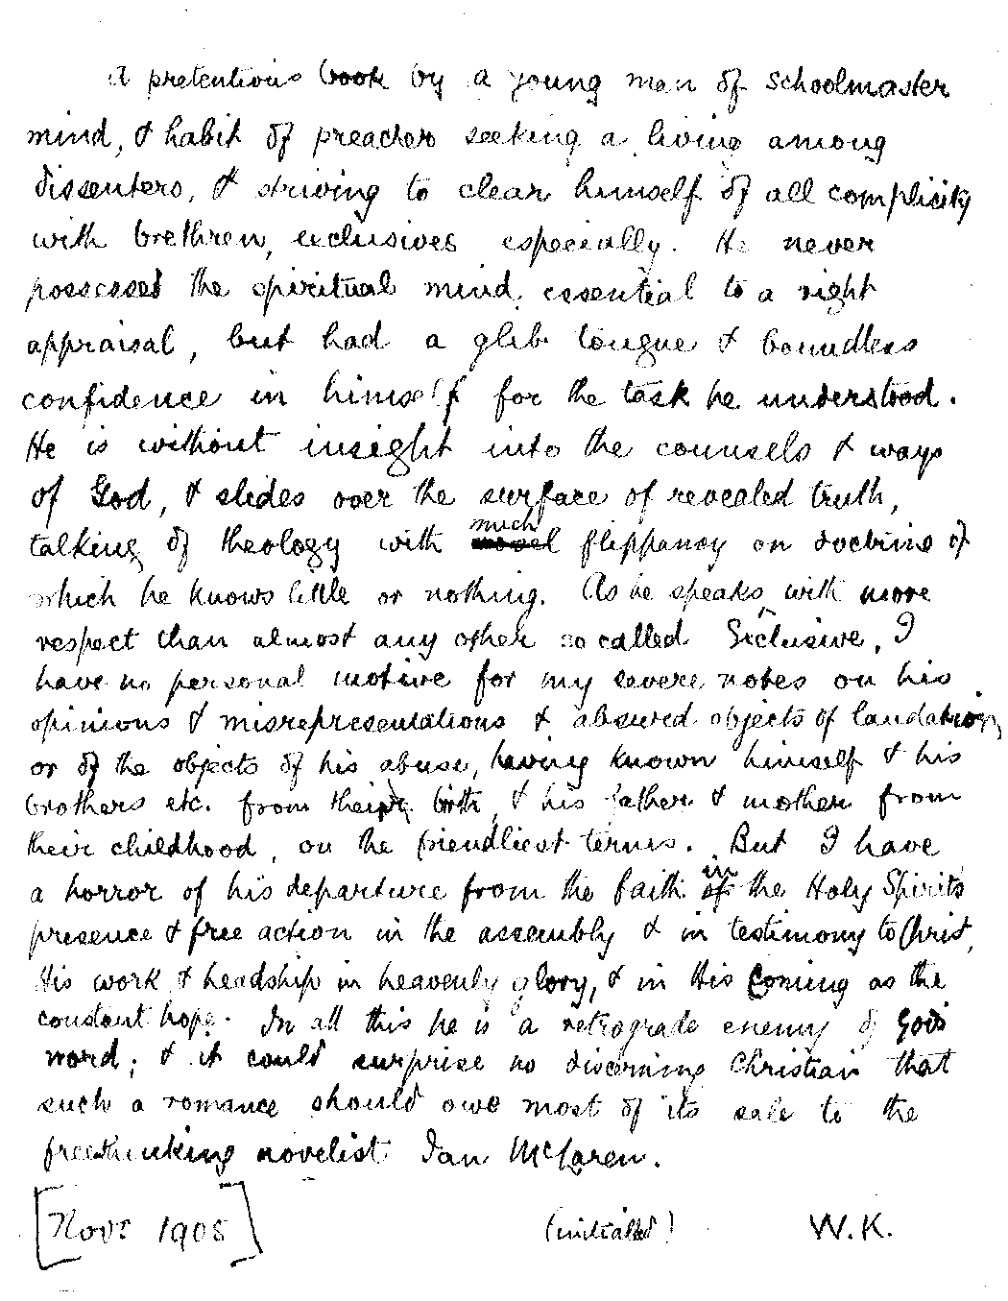 A pretentious book by a young man of schoolmaster
mind, & habit of preachers seeking a living among
dissenters, & striving to clear himself of all complicity
with brethren, exclusives especially. He never
possessed the spiritual mind essential to a right
appraisal, but had a glib tongue & boundless
confidence in himself for the task he understood.
He is without insight into the counsels & ways
of God, & slides over the surface of revealed truth,
talking of theology with much flippancy on doctrine of
which he knows little or nothing. As he speaks with more
respect than almost any other so called Exclusive, I
have no personal motive for my severe notes on his
opinions & misrepresentations & absurd objects of laudation,
or of the objects of his abuse, having known himself & his
brothers etc. from their birth, & his father & mother from
their childhood, on the friendliest terms. But I have
a horror of his departure from the faith in the Holy Spirit's
presence & free action in the assembly & in testimony to Christ,
His work & headship in heavenly glory, & in His Coming as the
constant hope. In all this he is a retrograde enemy of God's
word; & it could surprise no discerning Christian that
such a romance should owe most of its sale to the
freethinking novelist Ian McLaren.
[Novr 1905] (initialled) W.K.